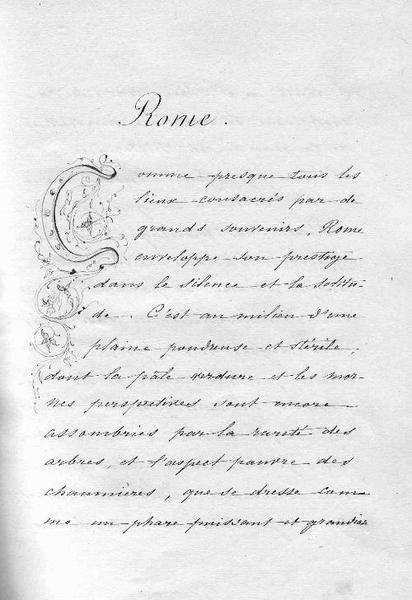 Rome.
Comme presque tous les
lieux consacrés par de
grands souvenirs, Rome
enveloppe son prestige
dans le silence et la solitu-
de. C'est au milieu d'une
plaine poudreuse et stérile,
dont la pâle verdure et les mor-
nes perspectives sont encore
assombries par la rareté des
arbres, et l'aspect pauvre des
chaumières, que se dresse com-
me un phare puissant et grandiose